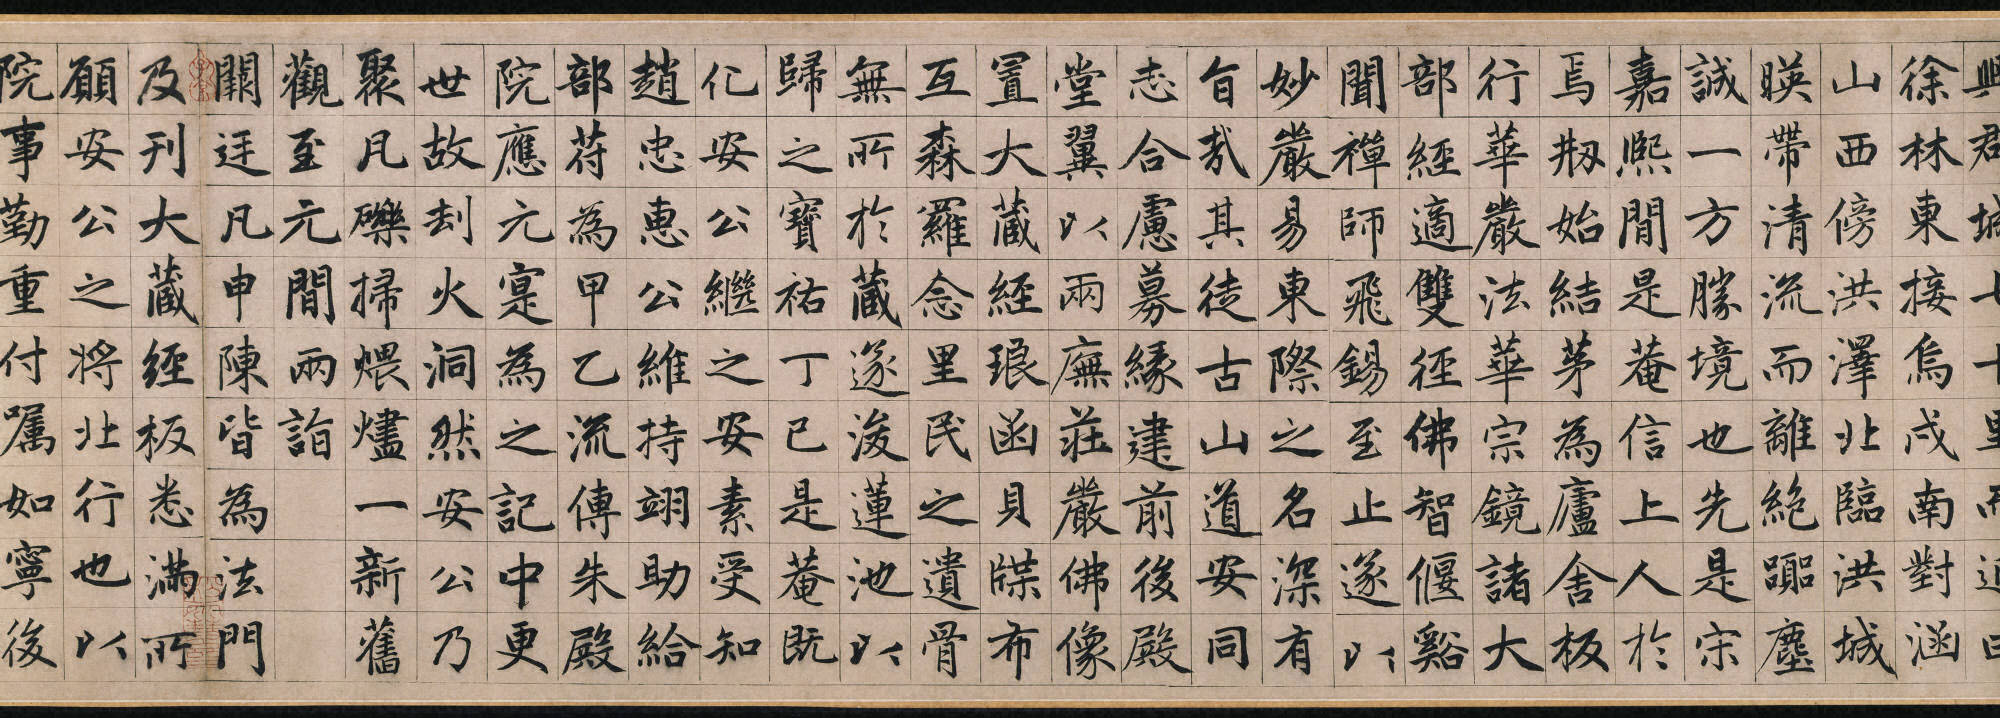 興君城七十里而近曰
徐林東接烏戍南對涵
山西傍洪澤北臨洪城
暎帶清流而離絕囂塵
誠一方勝境也先是宋
嘉熙間是菴信上人於
焉剏始結茅為廬舍板
行華嚴法華宗鏡諸大
部經適雙徑佛智偃谿
聞禪師飛錫至止遂以
妙嚴易東際之名深有
旨哉其徒古山道安同
志合慮募緣建前後殿
堂翼以兩廡莊嚴佛像
置大蔵經琅函貝牒布
互森羅念里民之遺骨
無所於蔵遂浚蓮池以
歸之寶祐丁巳是菴既
化安公繼之安素受知
趙忠惠公維持翊助給
部苻為甲乙流傳朱殿
院應元寔為之記中更
世故刦火洞然安公乃
聚凡礫掃煨燼一新舊
觀至元間兩詣
闕廷凡申陳皆為法門
及刊大蔵經板悉滿所
願安公之將北行也以
院事勤重付嘱如寧後